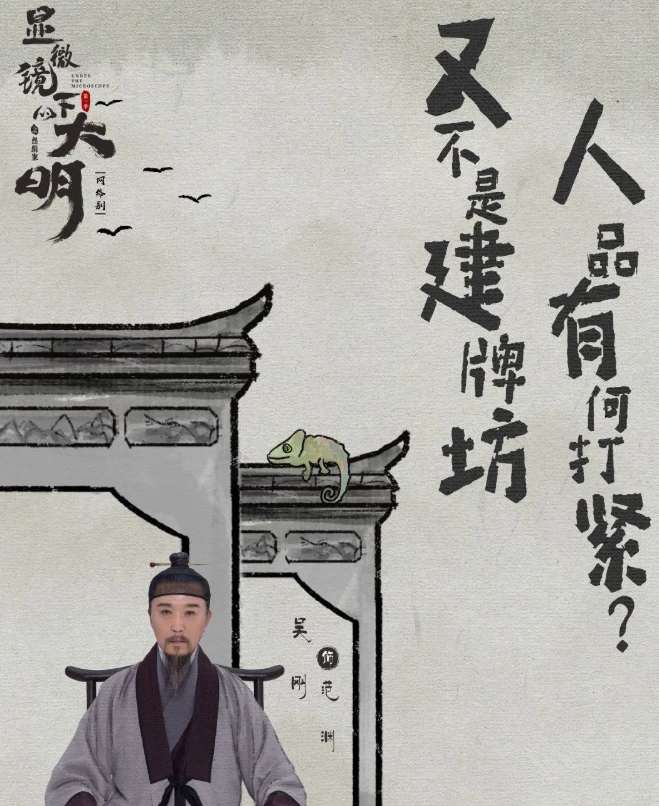 显微镜下的大明
之丝绢案
UNDER
THE
MICROSCOPE
第一季
网络剧
人品有何打紧？
又不是建牌坊
吴刚
饰 范渊